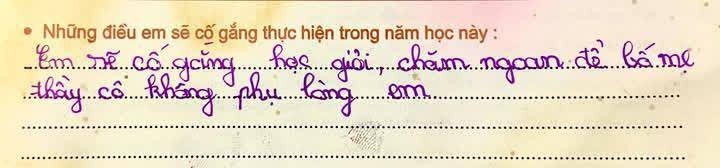 • Những điều em sẽ cố gắng thực hiện trong năm học này :
Em sẽ cố gắng học giỏi, chăm ngoan để bố mẹ
thầy cô không phụ lòng em